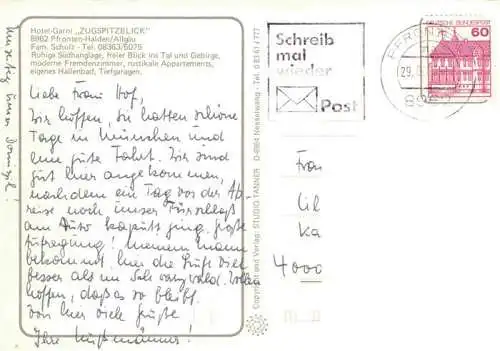 Hotel-Garni „ZUGSPITZBLICK"
8962 Pfronten-Halden/Allgäu
Fam. Schulz - Tel. 08363/5075
Ruhige Südhanglage, freier Blick ins Tal und Gebirge,
moderne Fremdenzimmer, rustikale Appartements,
eigenes Hallenbad, Tiefgaragen.
Liebe Frau Hof,
Wir hoffen, Sie hatten schöne
Tage in München und
eine gute Fahrt. Wir sind
gut hier angekommen,
nachdem ein Tag vor der Ab-
reise noch unser Türschloß
am Auto kaputt ging. große
Aufregung! Meinem Mann
bekommt hier die Luft viel
besser als im Schwarzwald. Wollen
hoffen, daß es so bleibt.
Von hier viele Grüße
Ihre
Unseres
Domizil!
Copyright und Verlag: STUDIO TANNER D-8964 Nesselwang - Tel. 0 83 61 / 777
Schreib
mal
wieder
Post
PFRONTEN
29.
DEUTSCHE BUNDESPOST
60
Frau
Ul
Ka
4000